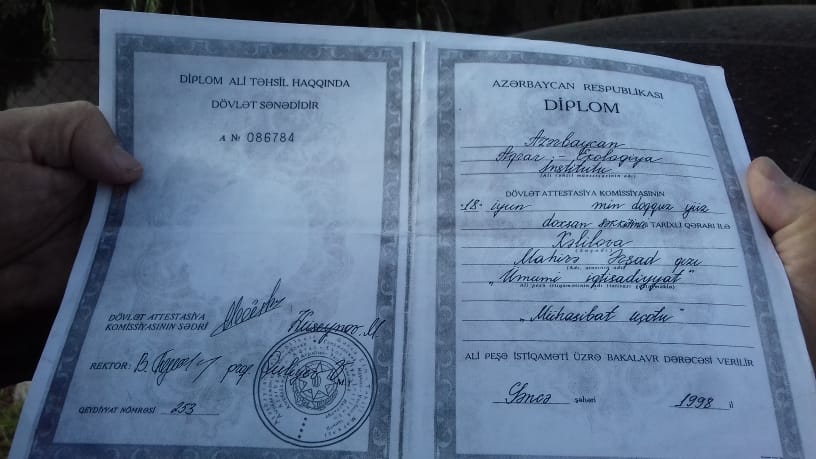 DİPLOM ALİ TƏHSİL HAQQINDA
DÖVLƏT SƏNƏDİDİR
A № 086784
DÖVLƏT ATTESTASİYA
KOMİSSİYASININ SƏDRİ
Huseynov. M
REKTOR:
prof.
M.Y
QEYDİYYAT NÖMRƏSİ 253
AZƏRBAYCAN RESPUBLİKASI
DİPLOM
Azərbaycan
Aqrar - Ekologiya
İnstitutu
(Ali təhsil müəssisəsinin adı)
DÖVLƏT ATTESTASİYA KOMİSSİYASININ
-18- iyun min doqquz yüz
doxsan səkkizinci TARİXLİ QƏRARI İLƏ
Xəlilova
(Soyadı)
Mahirə Əşəd qızı
(Adı, atasının adı)
"Ümumi iqtisadiyyat"
"Mühasibat uçotu"
ALİ PEŞƏ İSTİQAMƏTİ ÜZRƏ BAKALAVR DƏRƏCƏSİ VERİLİR
Gəncə şəhəri 1998 il